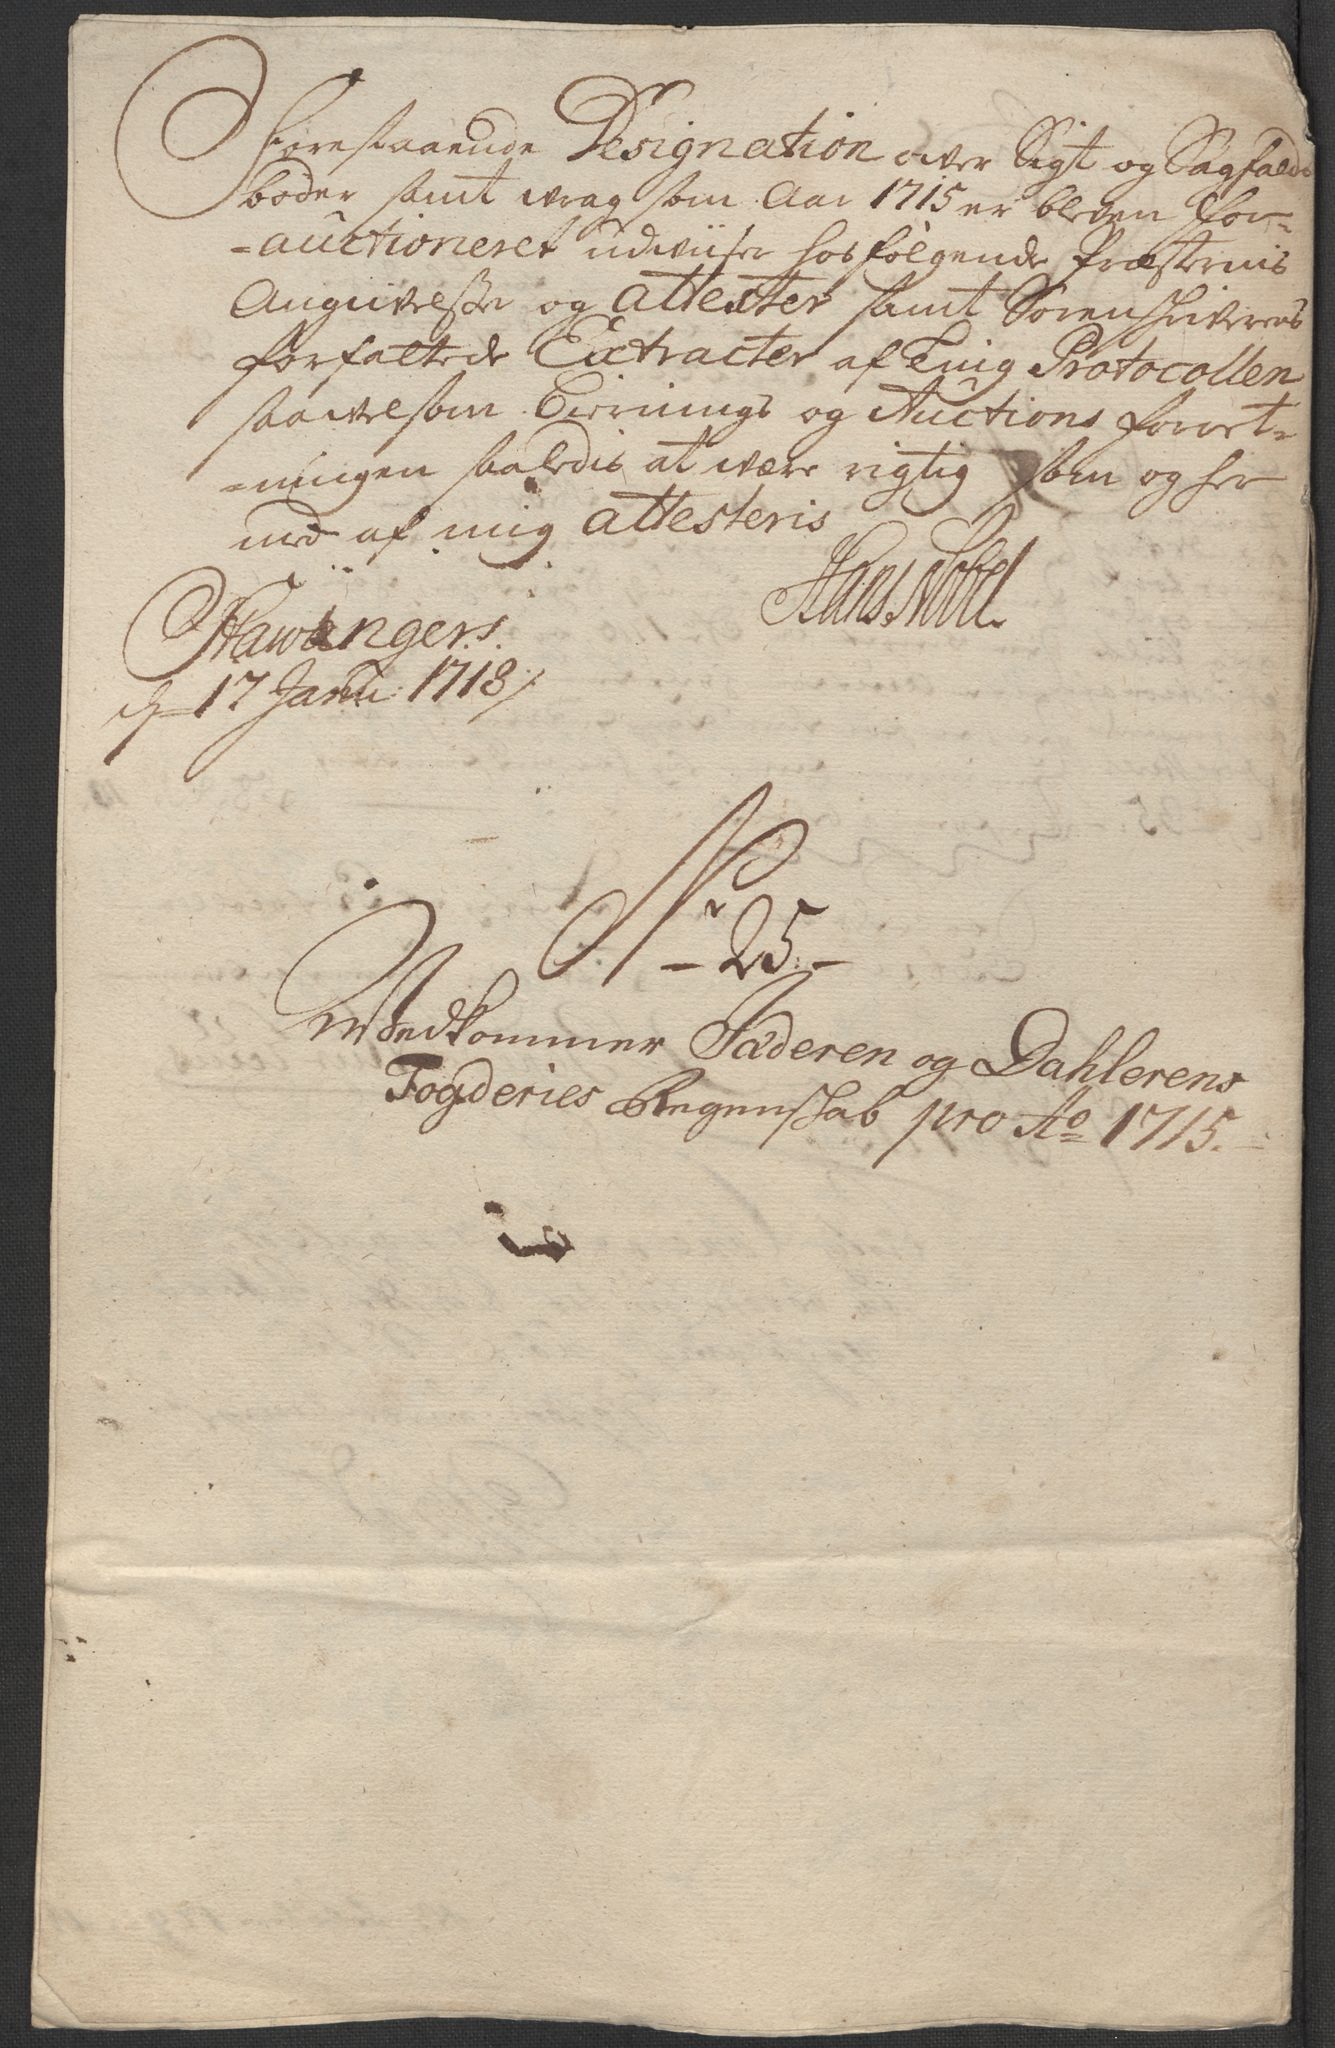 Forestaaende Designation over Sigt og Sagfalds
böder samt vrag som Aar 1715 er bleven for-
-auctioneret udviiser hosfölgende Præsternis
Angivelße og attester samt Sorenschriverens
forfattede Extracter af Ting Protocollen
saavelsom og Auctions forret-
-ningen saaledis at være rigtig som og her
med af mig attesteris
Hans Nobel.
Stawangers.
d 17 Janu: 1718
Nr
- 25. -
Vedkommer Jæderen og Dahlerens
Fogderies Regenschab pro Ao 1715.